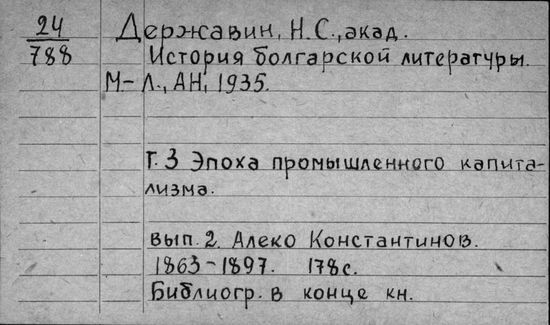 24
788
Державин, Н.С., акад.
История болгарской литературы.
М-Л., АН, 1935.
Т. 3 Эпоха промышленного капита-
лизма.
вып. 2. Алеко Константинов.
1863-1897. 178с.
Библиогр. в конце кн.